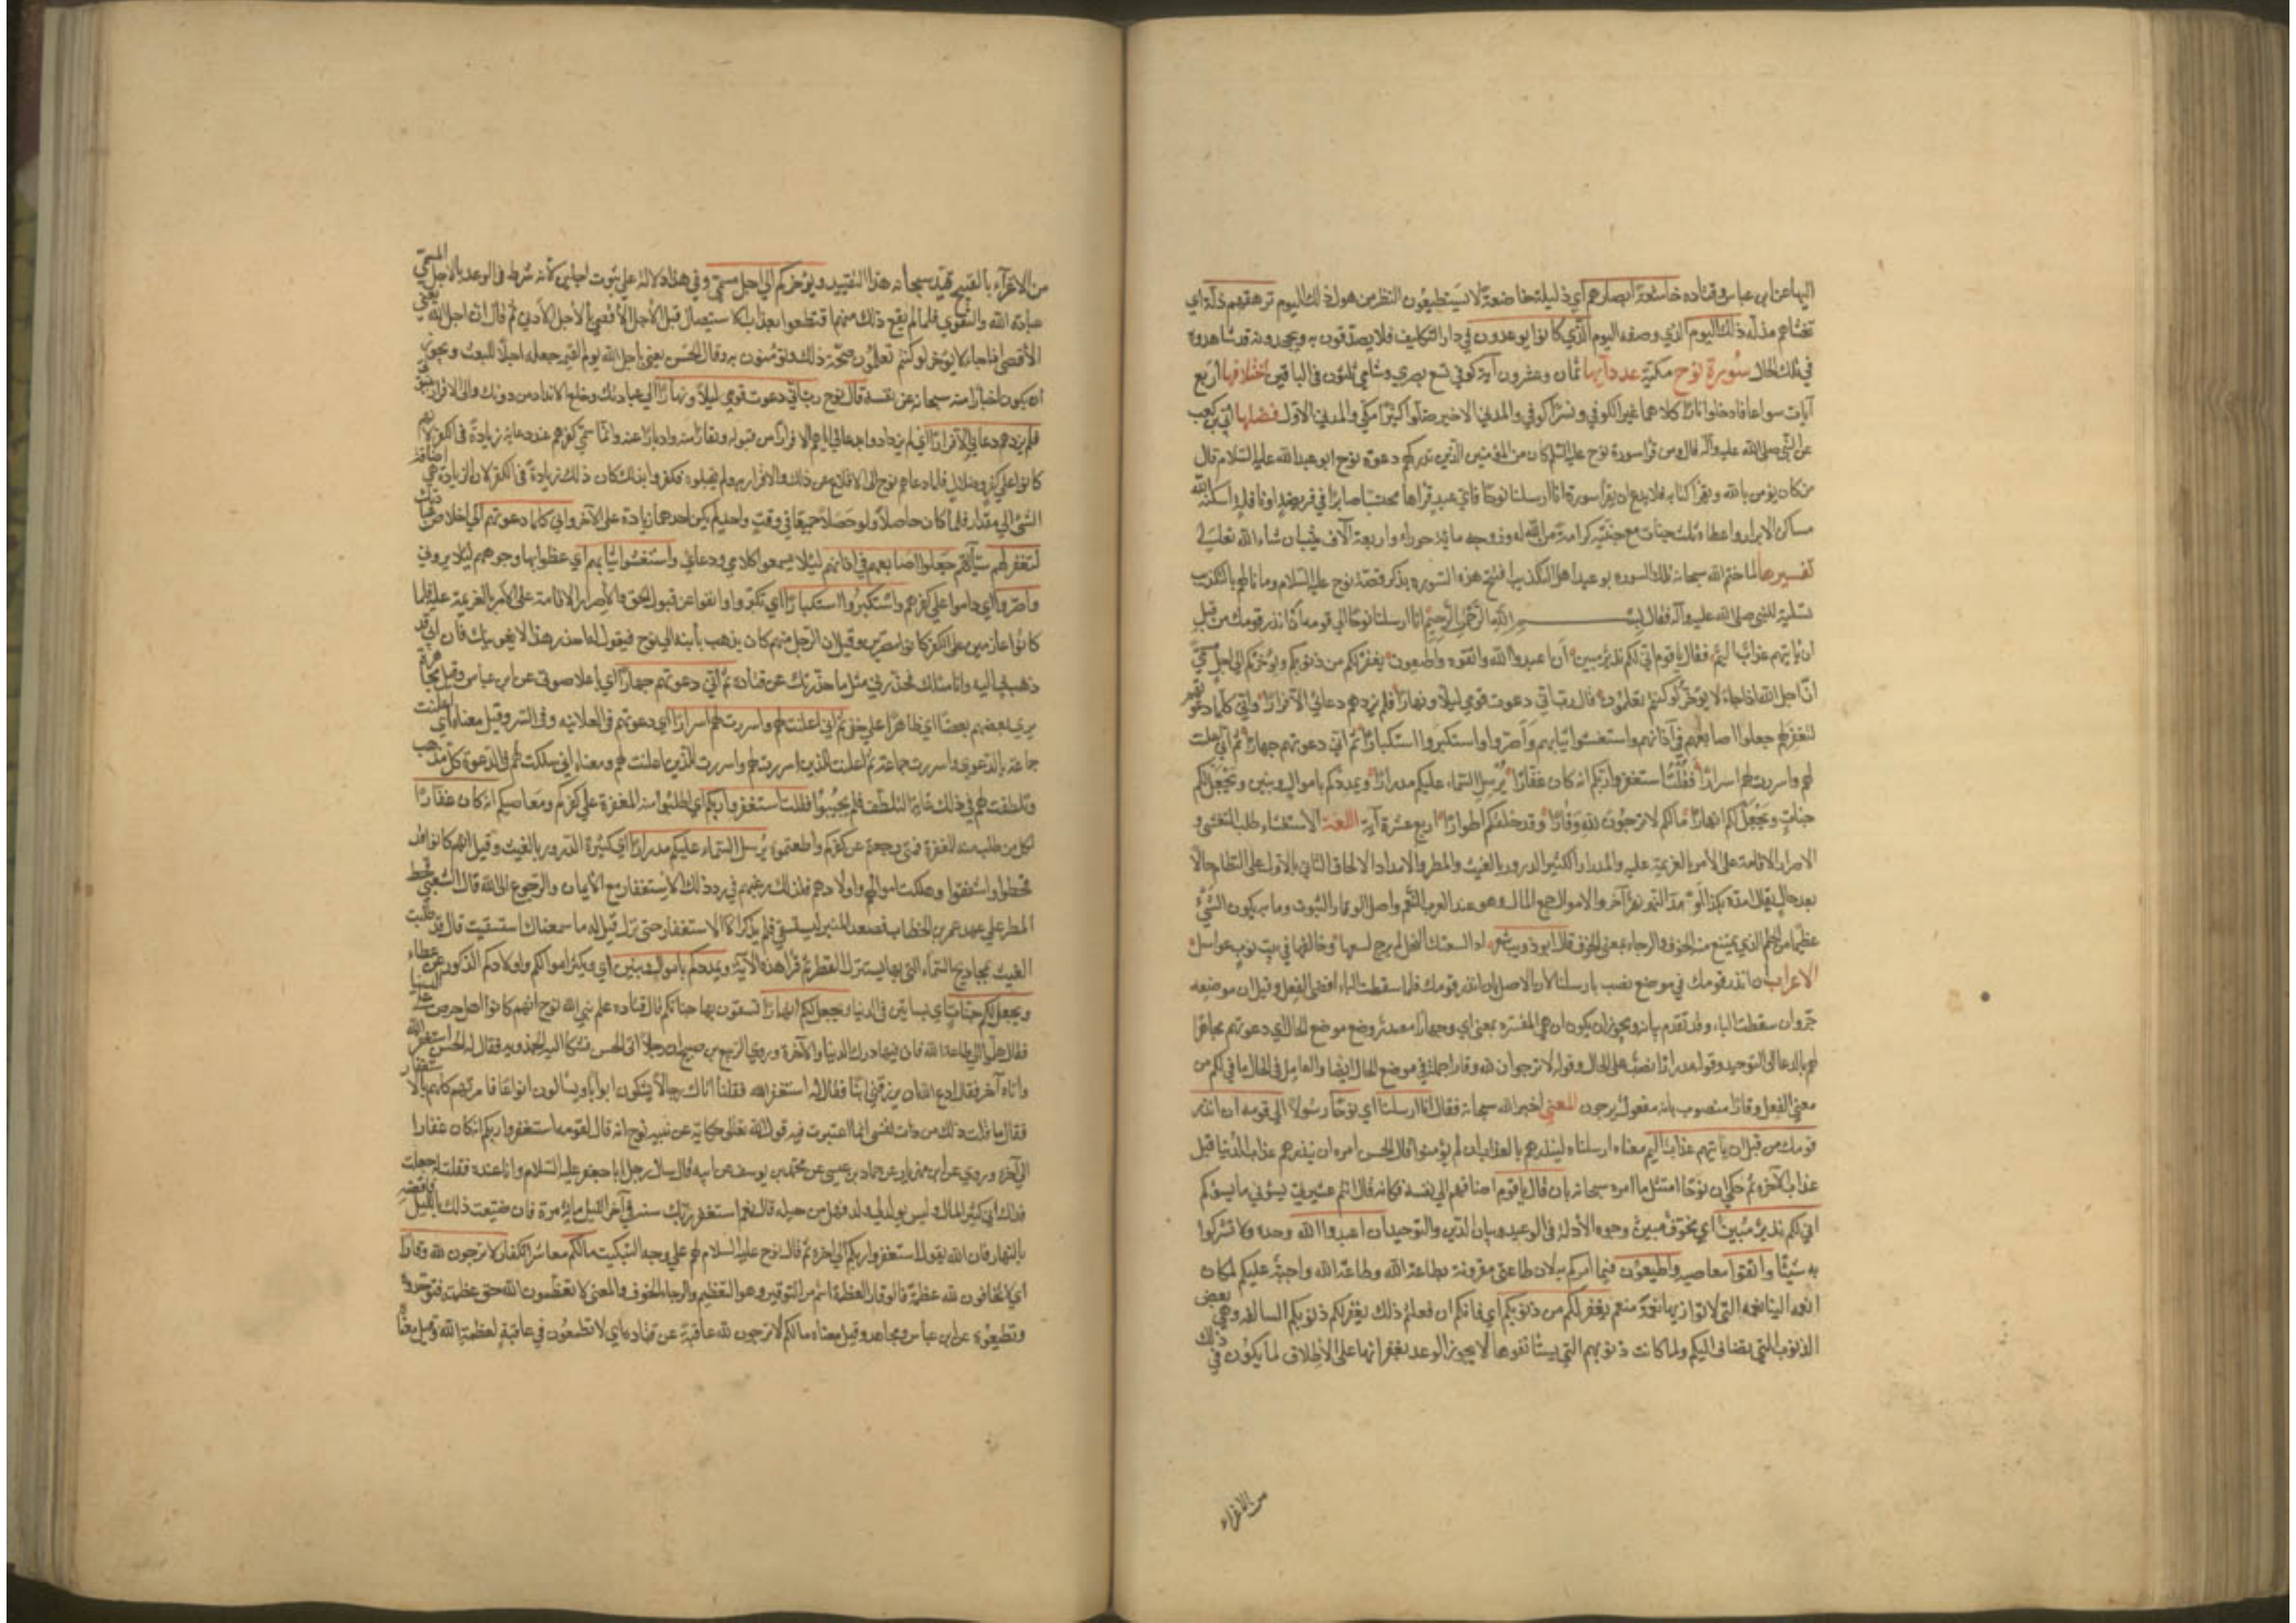 اليها عن ابن عباس وقتاده خاشعة ابصارهم اي ذليلة خاضعة لا يستطيعون النظر من هول ذلك اليوم ترهقهم ذلة اي
تغشاهم مذلة ذلك اليوم الذي وصفه اليوم الذي كانوا يوعدون في دار التكليف فلا يصدقون به ويجحدونه قد شاهدوه
في تلك الحال سورة نوح مكية عدد آيها ثمان وعشرون آية كوفي تسع بصري وشامي ثلثون في الباقين اختلافها اربع
آيات سواعا فادخلوا نارا كلاهما غير الكوفي ونسرا كوفي والمدني الاخير اضلوا كثيرا مكي والمدني الاول فضلها ابي بن كعب
عن النبي صلى الله عليه وآله قال ومن قرا سورة نوح عليه السلم كان من المؤمنين الذين تدركهم دعوة نوح ابو عبد الله عليه السلام قال
من كان يؤمن بالله ويقرأ كتابه فلا يدع ان يقرا سورة انا ارسلنا نوحا فاي عبد قراها محتسبا صابرا في فريضة او نافلة اسكنه الله
مساكن الابرار واعطاه ثلث جنات مع جنته كرامة من الله له وزوجه مائتي حوراء واربعة آلاف ثيب ان شاء الله تعالى
تفسيرها لما ختم الله سبحانه تلك السوره بوعيد اهل التكذيب افتتح هذه السورة بذكر قصة نوح عليه السلام وما ناله بالتكذيب
تسلية للنبي صلى الله عليه وآله فقال بسم الله الرحمن الرحيم انا ارسلنا نوحا الى قومه ان انذر قومك من قبل
ان ياتيهم عذاب اليم فقال يا قوم اني لكم نذير مبين ان اعبدوا الله واتقوه واطيعون يغفر لكم من ذنوبكم ويؤخركم الى اجل مسمى
ان اجل الله اذا جاء لا يؤخر لو كنتم تعلمون قال رب اني دعوت قومي ليلا ونهارا فلم يزدهم دعائي الا فرارا واني كلما دعوتهم
لتغفر لهم جعلوا اصابعهم في آذانهم واستغشوا ثيابهم واصروا واستكبروا استكبارا ثم اني دعوتهم جهارا ثم اني اعلنت
لهم واسررت لهم اسرارا فقلت استغفروا ربكم انه كان غفارا يرسل السماء عليكم مدرارا ويمددكم باموال وبنين ويجعل لكم
جنات ويجعل لكم انهارا ما لكم لا ترجون لله وقارا وقد خلقكم اطوارا اربع عشرة آية اللغة الاستغشاء طلب التغشي و
الاصرار الاقامة على الامر بالعزيمة عليه والمدرار الكثير الدرور بالغيث والمطر والامداد الالحاق الثاني بالاول على النظام حالا
بعد حال يقال امده بكذا ومد النهر نهر آخر والاموال جمع المال وهو عند العرب النعم واصل الوقار الثبوت وما به يكون الشيء
عظيما من الحلم الذي يمتنع منه الخوف والرجاء بمعنى الخوف قال ابو ذويب شعر اذا لسعته النحل لم يرج لسعها وخالفها في بيت نوب عواسل
الاعراب ان انذر قومك في موضع نصب بارسلنا لان الاصل بان انذر قومك فلما سقطت الباء افضى الفعل وقيل ان موضعه
جر وان سقطت الباء وقد تقدم بيانه ويجوز ان يكون ان هي المفسرة بمعنى اي وجهارا مصدر وضع موضع الحال اي دعوتهم مجاهرا
لهم بالدعا الى التوحيد وقوله مدرارا نصب على الحال وقوله لا ترجون لله وقارا جملة في موضع الحال ايضا والعامل في الحال ما في لكم من
معنى الفعل وقارا منصوب بانه مفعول ترجون المعنى اخبر الله سبحانه فقال انا ارسلنا اي نوحا رسولا الى قومه ان انذر
قومك من قبل ان ياتيهم عذاب اليم معناه ارسلناه لينذرهم بالعذاب ان لم يؤمنوا قال الحسن امره ان ينذرهم عذاب الدنيا قبل
عذاب الآخرة ثم حكى ان نوحا امتثل ما امره سبحانه بان قال يا قوم اضافهم الى نفسه فكانه قال انتم عشيرتي يسؤني ما يسؤكم
اني لكم نذير مبين اي مخوف مبين وجوه الأدلة في الوعيد وبيان الدين والتوحيد ان اعبدوا الله وحده ولا تشركوا
به شيئا واتقوا معاصيه واطيعون فيما امركم به لان طاعتي مقرونة بطاعة الله وطاعة الله واجبة عليكم لمكان
نعمه السابغة التي لا توازيها نعمة منعم يغفر لكم من ذنوبكم اي فانكم ان فعلتم ذلك يغفر لكم ذنوبكم السالفة وهي بعض
الذنوب التي تضاف اليكم ولما كانت ذنوبهم التي يستانفونها لا يجوز الوعد بغفرانها على الاطلاق لما يكون في ذلك
من الاغراء
من الاغراء بالقبيح قيد سبحانه هذا التقييد ويؤخركم الى اجل مسمى وفي هذا دلالة على ثبوت اجلين كانه شرط في الوعد بالاجل المسمى
عبادة الله والتقوى فلما لم يقع ذلك منهم اقتطعوا بعذاب الاستيصال قبل الأجل الأقصى بالأجل الأدنى ثم قال ان اجل الله يعني
الأقصى اذا جاء لا يؤخر لو كنتم تعلمون صحة ذلك وتؤمنون به وقال الحسن يعني باجل الله يوم القيمة جعله اجلا للبعث ويجوز
ان يكون اخبارا منه سبحانه عن نفسه قال نوح رب اني دعوت قومي ليلا ونهارا الى عبادتك وخلع الانداد من دونك والى الاقرار بنبوتي
فلم يزدهم دعائي الا فرارا اي لم يزدادوا بدعائي اياهم الا فرارا من قبوله ونفارا منه وادبارا عنه وانما سمي كفرهم عند دعائه زيادة في الكفر لانهم
كانوا على كفر وضلال فلما دعاهم نوح الى الاقلاع عن ذلك والاقرار به ولم يقبلوه فكفروا بذلك كان ذلك زيادة في الكفر لان الزيادة هي اضافة
الشيء الى مقدار فلما كان حاصلا ولو حصلا جميعا في وقت واحد لم يكن احدهما زيادة على الآخر واني كلما دعوتهم الى اخلاص عبادتك
لتغفر لهم سيآتهم جعلوا اصابعهم في اذانهم لئلا يسمعوا كلامي ودعائي واستغشوا ثيابهم اي غطوا بها وجوههم لئلا يروني
واصروا اي داموا على كفرهم واستكبروا استكبارا اي تكبروا وانفوا عن قبول الحق والاصرار الاقامة على الامر بالعزيمة عليه فلما
كانوا عازمين على الكفر كانوا مصرين وقيل ان الرجل منهم كان يذهب بابنه الى نوح فيقول له احذر هذا لا يغوينك فان ابي قد
ذهب بي اليه وانا مثلك فحذرني مثل ما حذرتك عن قتاده ثم اني دعوتهم جهارا اي باعلا صوتي عن ابن عباس وقيل مجاهرة
يرى بعضهم بعضا اي ظاهرا على خفي ثم اني اعلنت لهم واسررت لهم اسرارا اي دعوتهم في العلانيه وفي السر وقيل معناه اي اعلنت
جماعة بالدعوى واسررت جماعة ثم اعلنت للذين اسررت لهم واسررت للذين اعلنت لهم ومعناه اني سلكت لهم في الدعوة كل مذهب
وتلطفت لهم في ذلك غاية التلطف فلم يجيبوا فقلت استغفروا ربكم اي اطلبوا منه المغفرة على كفركم ومعاصيكم انه كان غفارا
لكل من طلب منه المغفرة فمتى رجعتم عن كفركم واطعتموه يرسل السماء عليكم مدرارا اي كثيرة الدرور بالغيث وقيل انهم كانوا قد
قحطوا واسنتوا وهلكت اموالهم واولادهم فلذلك رغبهم في رد ذلك بالاستغفار مع الايمان والرجوع الى الله قال الشعبي قحط
المطر على عهد عمر بن الخطاب فصعد المنبر ليستسقي فلم يذكر الا الاستغفار حتى نزل فقيل له ما سمعناك استسقيت قال قد طلبت
الغيث بمجاديح السماء التي بها يستنزل القطر ثم قرا هذه الآية ويمددكم باموال وبنين اي ويكثر اموالكم واولادكم الذكور عن عطاء
ويجعل لكم جنات اي بساتين في الدنيا ويجعل لكم انهارا تسقون بها جناتكم قال قتاده علم نبي الله نوح انهم كانوا اهل حرص على الدنيا
فقال هلموا الى طاعة الله فان فيها درك الدنيا والآخرة وروى الربيع بن صبيح ان رجلا اتى الحسن فشكا اليه الجدوبة فقال له الحسن استغفر الله
واتاه آخر فقال ادع الله ان يرزقني ابنا فقال له استغفر الله فقلنا اتاك رجال يشكون ابوابا ويسالون انواعا فامرتهم كلهم بالاستغفار
فقال ما قلت ذلك من ذات نفسي انما اعتبرت فيه قول الله تعالى حكاية عن نبيه نوح انه قال لقومه استغفروا ربكم انه كان غفارا
الى آخره وروى علي بن مهزيار عن حماد بن عيسى عن محمد بن يوسف عن ابيه قال سال رجل ابا جعفر عليه السلام وانا عنده فقال له جعلت
فداك اني كثير المال وليس يولد لي ولد فهل من حيلة قال نعم استغفر ربك سنة في آخر الليل مائة مرة فان ضيعت ذلك بالليل فاقضه
بالنهار فان الله يقول استغفروا ربكم الى آخره ثم قال نوح عليه السلام لهم على وجه التبكيت ما لكم معاشر الكفار لا ترجون لله وقارا
اي لا تخافون لله عظمة فالوقار العظمة اسم من التوقير وهو التعظيم والرجاء الخوف والمعنى لا تعظمون الله حق عظمته فتوحدوه
وتطيعوه عن ابن عباس ومجاهد وقيل معناه ما لكم لا ترجون لله عاقبة عن قتاده اي لا تطمعون في عاقبة لعظمة الله وقيل معناه